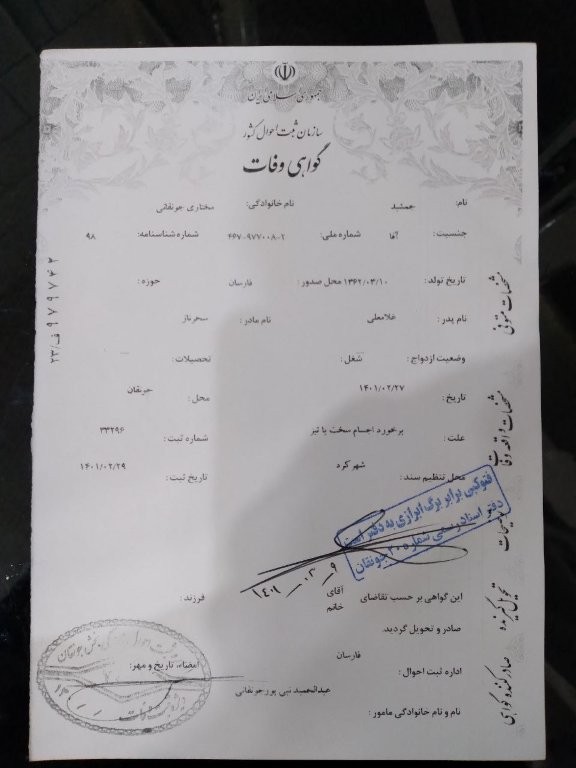 جمهوری اسلامی ایران
سازمان ثبت احوال کشور
گواهی وفات
نام: جمشید نام خانوادگی: مختاری جونقانی
جنسیت: آقا شماره ملی: ۴۶۷-۹۷۷۰۰۸-۲ شماره شناسنامه: ۹۸
تاریخ تولد: ۱۳۶۲/۰۳/۱۰ محل صدور: فارسان حوزه:
نام پدر: غلامعلی نام مادر: سحرناز
وضعیت ازدواج: شغل: تحصیلات:
مشخصات متوفی
تاریخ: ۱۴۰۱/۰۲/۲۷ محل: جونقان
علت: برخورد اجسام سخت یا تیز شماره ثبت: ۳۳۲۹۶
محل تنظیم سند: شهر کرد تاریخ ثبت: ۱۴۰۱/۰۲/۲۹
مشخصات واقعه وفات
فتوکپی برابر برگ ابرازی به دفتر است
دفتر اسناد رسمی شماره ۲۰ جونقان
توضیحات
این گواهی بر حسب تقاضای آقای خانم فرزند:
صادر و تحویل گردید.
تحویل گیرنده
اداره ثبت احوال: فارسان امضاء، تاریخ و مهر:
نام و نام خانوادگی مامور: عبدالحمید نبی پور جونقانی
صادر کننده گواهی